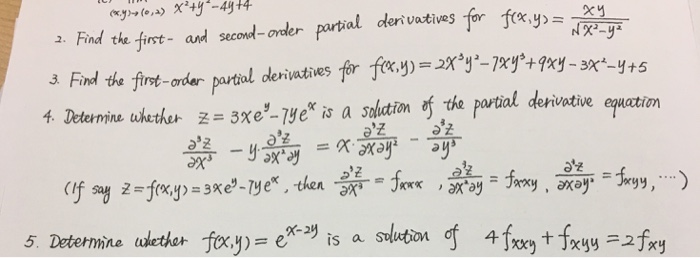 (x,y)→(0,2) x²+y²-4y+4
2. Find the first- and second-order partial derivatives for f(x,y) = xy/√x²-y²
3. Find the first-order partial derivatives for f(x,y) = 2x³y²-7xy³+9xy-3x²-y+5
4. Determine whether z = 3xe^y-7ye^x is a solution of the partial derivative equation
∂³z/∂x³ - y·∂³z/∂x²∂y = x·∂³z/∂x∂y² - ∂³z/∂y³
(If say z = f(x,y) = 3xe^y-7ye^x, then ∂³z/∂x³ = fxxx, ∂³z/∂x²∂y = fxxy, ∂³z/∂x∂y² = fxyy, ....)
5. Determine whether f(x,y) = e^x-2y is a solution of 4fxxy + fxyy = 2fxy